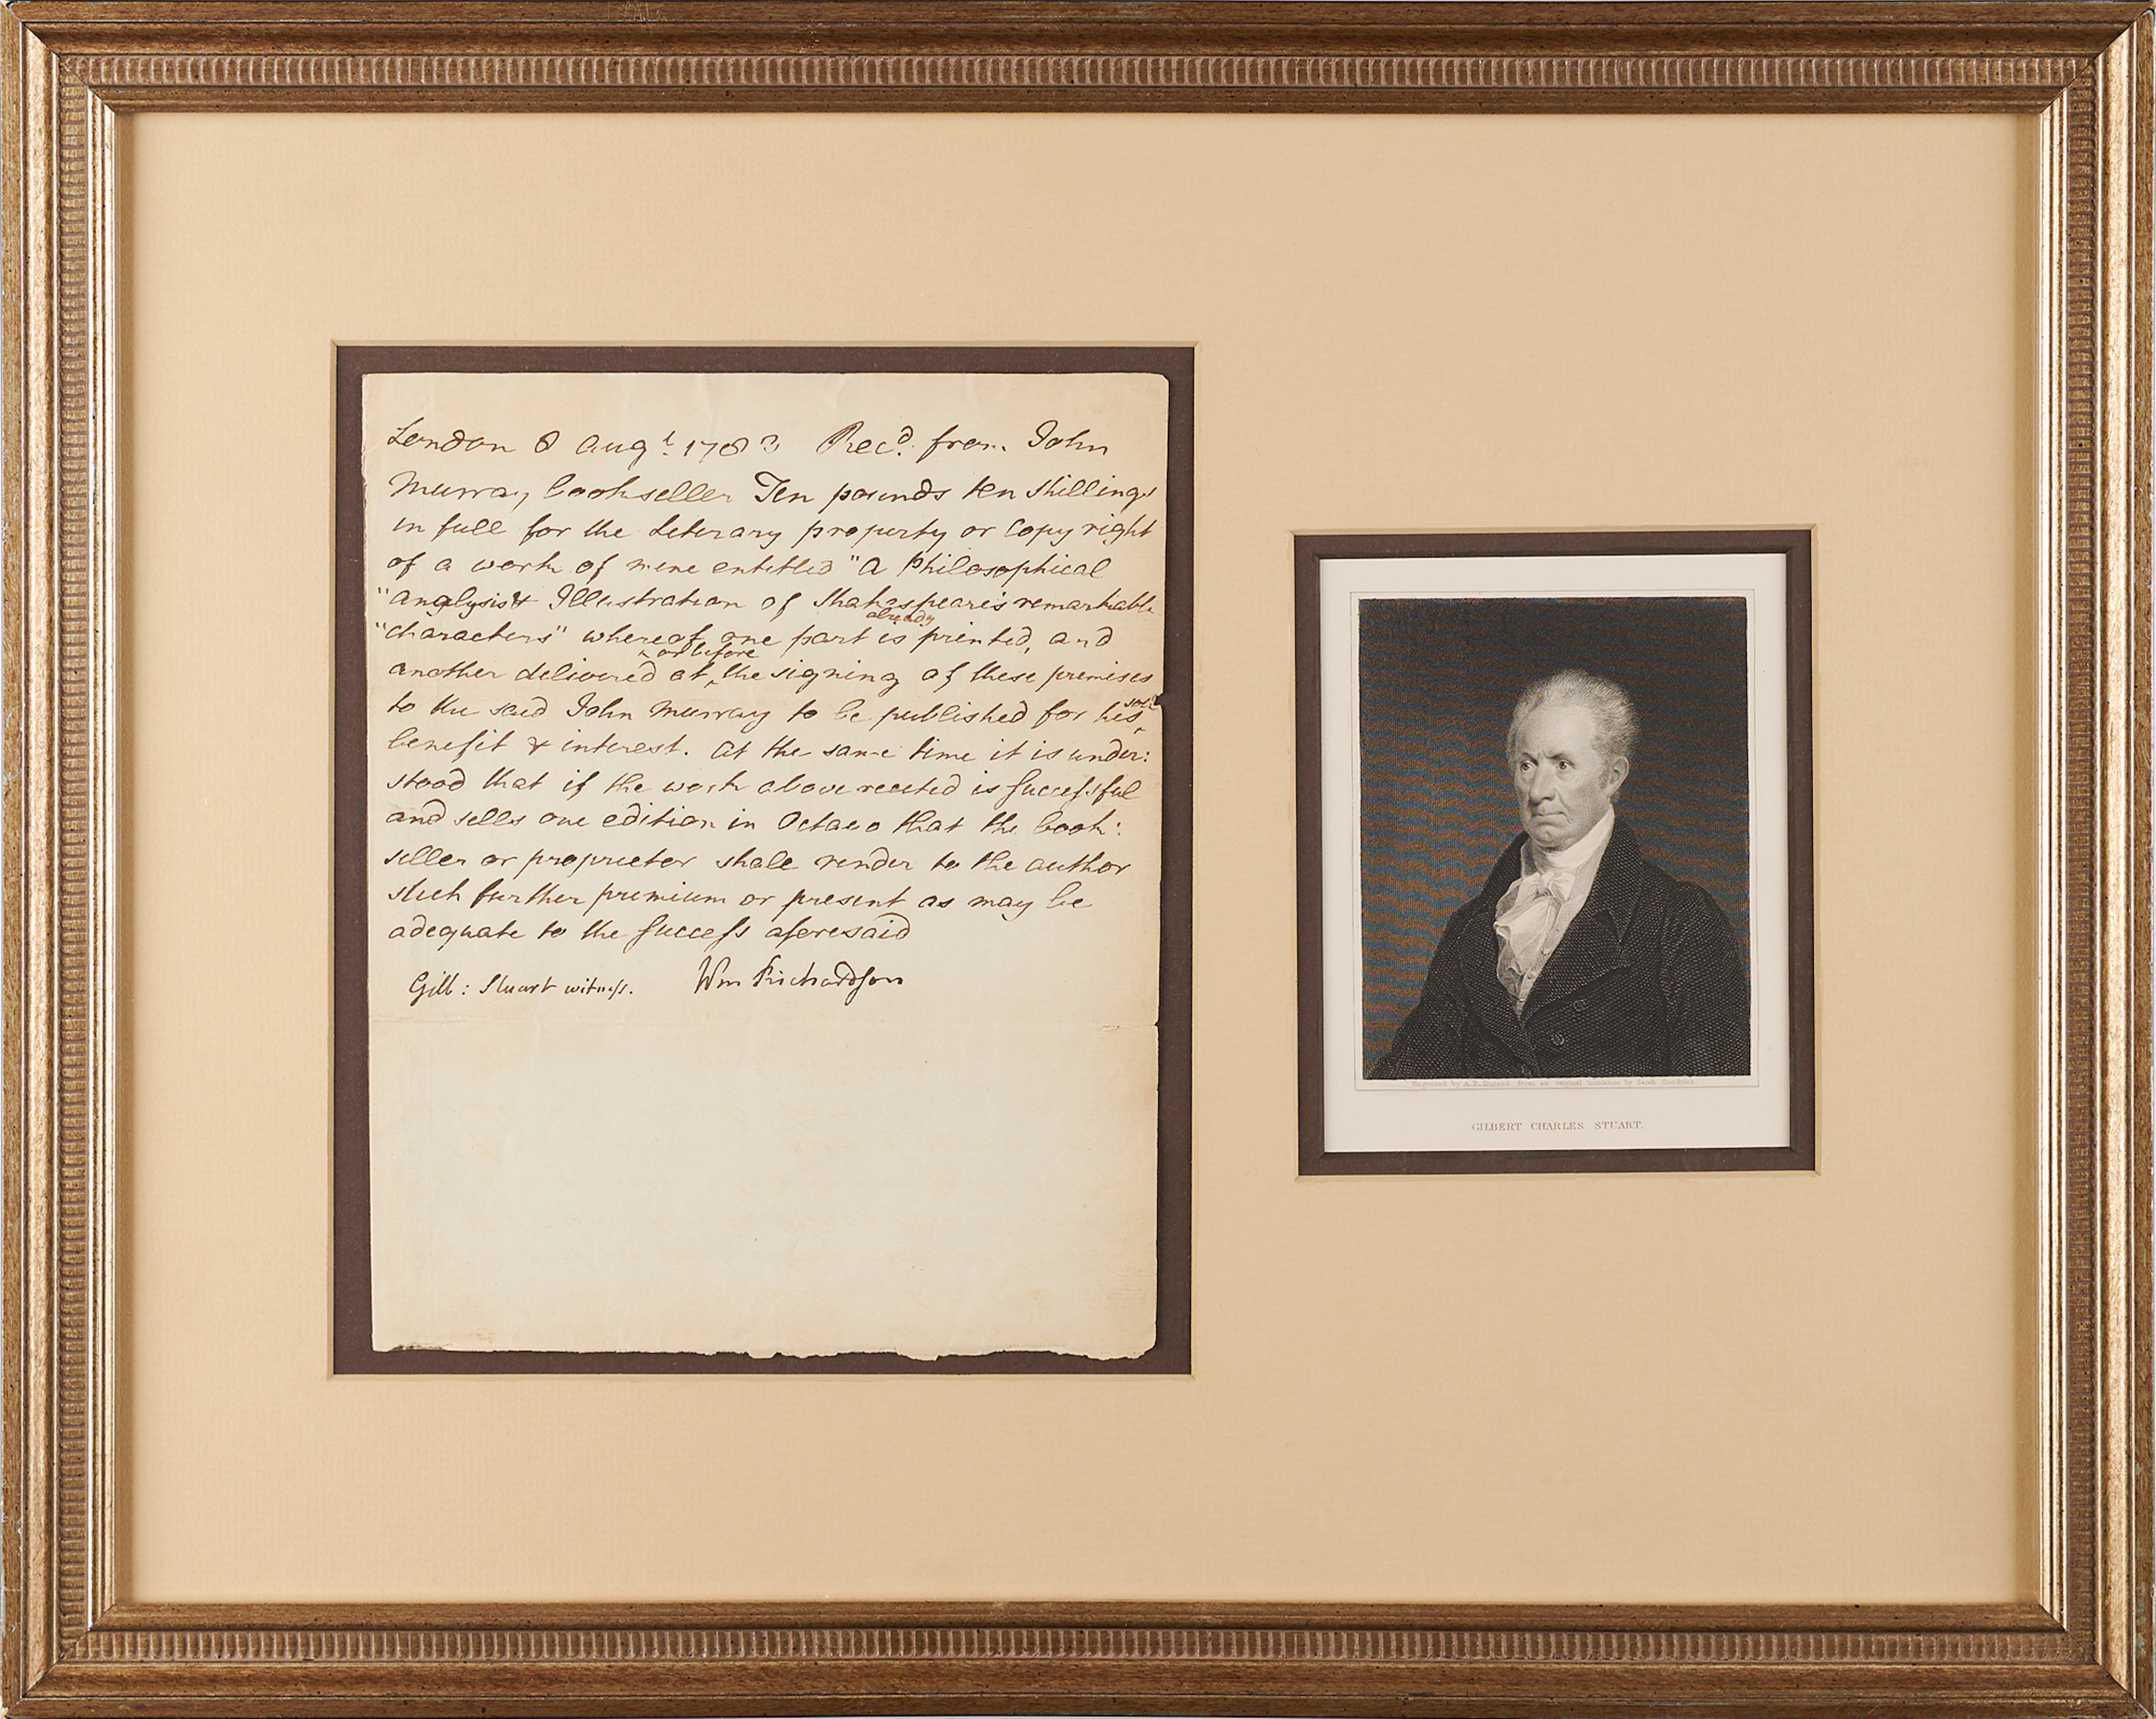 London 8 Augt. 1783 Recd. from John
Murray bookseller Ten pounds ten shillings
in full for the Literary property or Copy right
of a work of mine entitled "A Philosophical
"Analysis & Illustration of Shakespeare's remarkable
already
"Characters" whereof one part is printed, and
or before
another delivered at the signing of these premises
sole
to the said John Murray to be published for his
benefit & interest. At the same time it is under:
stood that if the work above recited is successful
and sells one edition in Octavo that the book:
seller or proprietor shall render to the author
such further premium or present as may be
adequate to the success aforesaid
Gilb: Stuart witness. Wm Richardson
Engraved by A.B. Durand from an original miniature by Sarah Goodrich.
GILBERT CHARLES STUART.